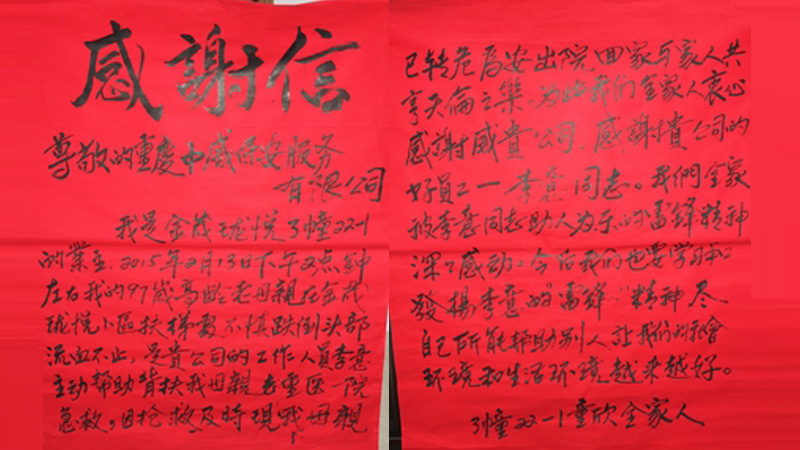 感謝信
尊敬的重慶中感保安服务
有限公司
我是金茂珑悦3幢22-1
的業主、2015年2月13日下午2点鈡
左右我的97歲高龄老母親在金茂
珑悦小區扶梯處不慎跌倒头部
流血不止，是貴公司的工作人員李意
主动帮助背扶我母親去重医一院
急救，因抢救及時現我母親
已转危為安出院回家与家人共
享天倫之樂。为此我们全家人衷心
感謝感貴公司，感謝貴公司的
好員工一李意同志。我們全家
被李意同志助人为乐的雷锋精神
深々感动。今后我们也要学习和
發揚李意的"雷锋"精神尽
自己所能帮助别人让我们的社會
环境和生活环境越来越好。
3幢22-1重欣全家人